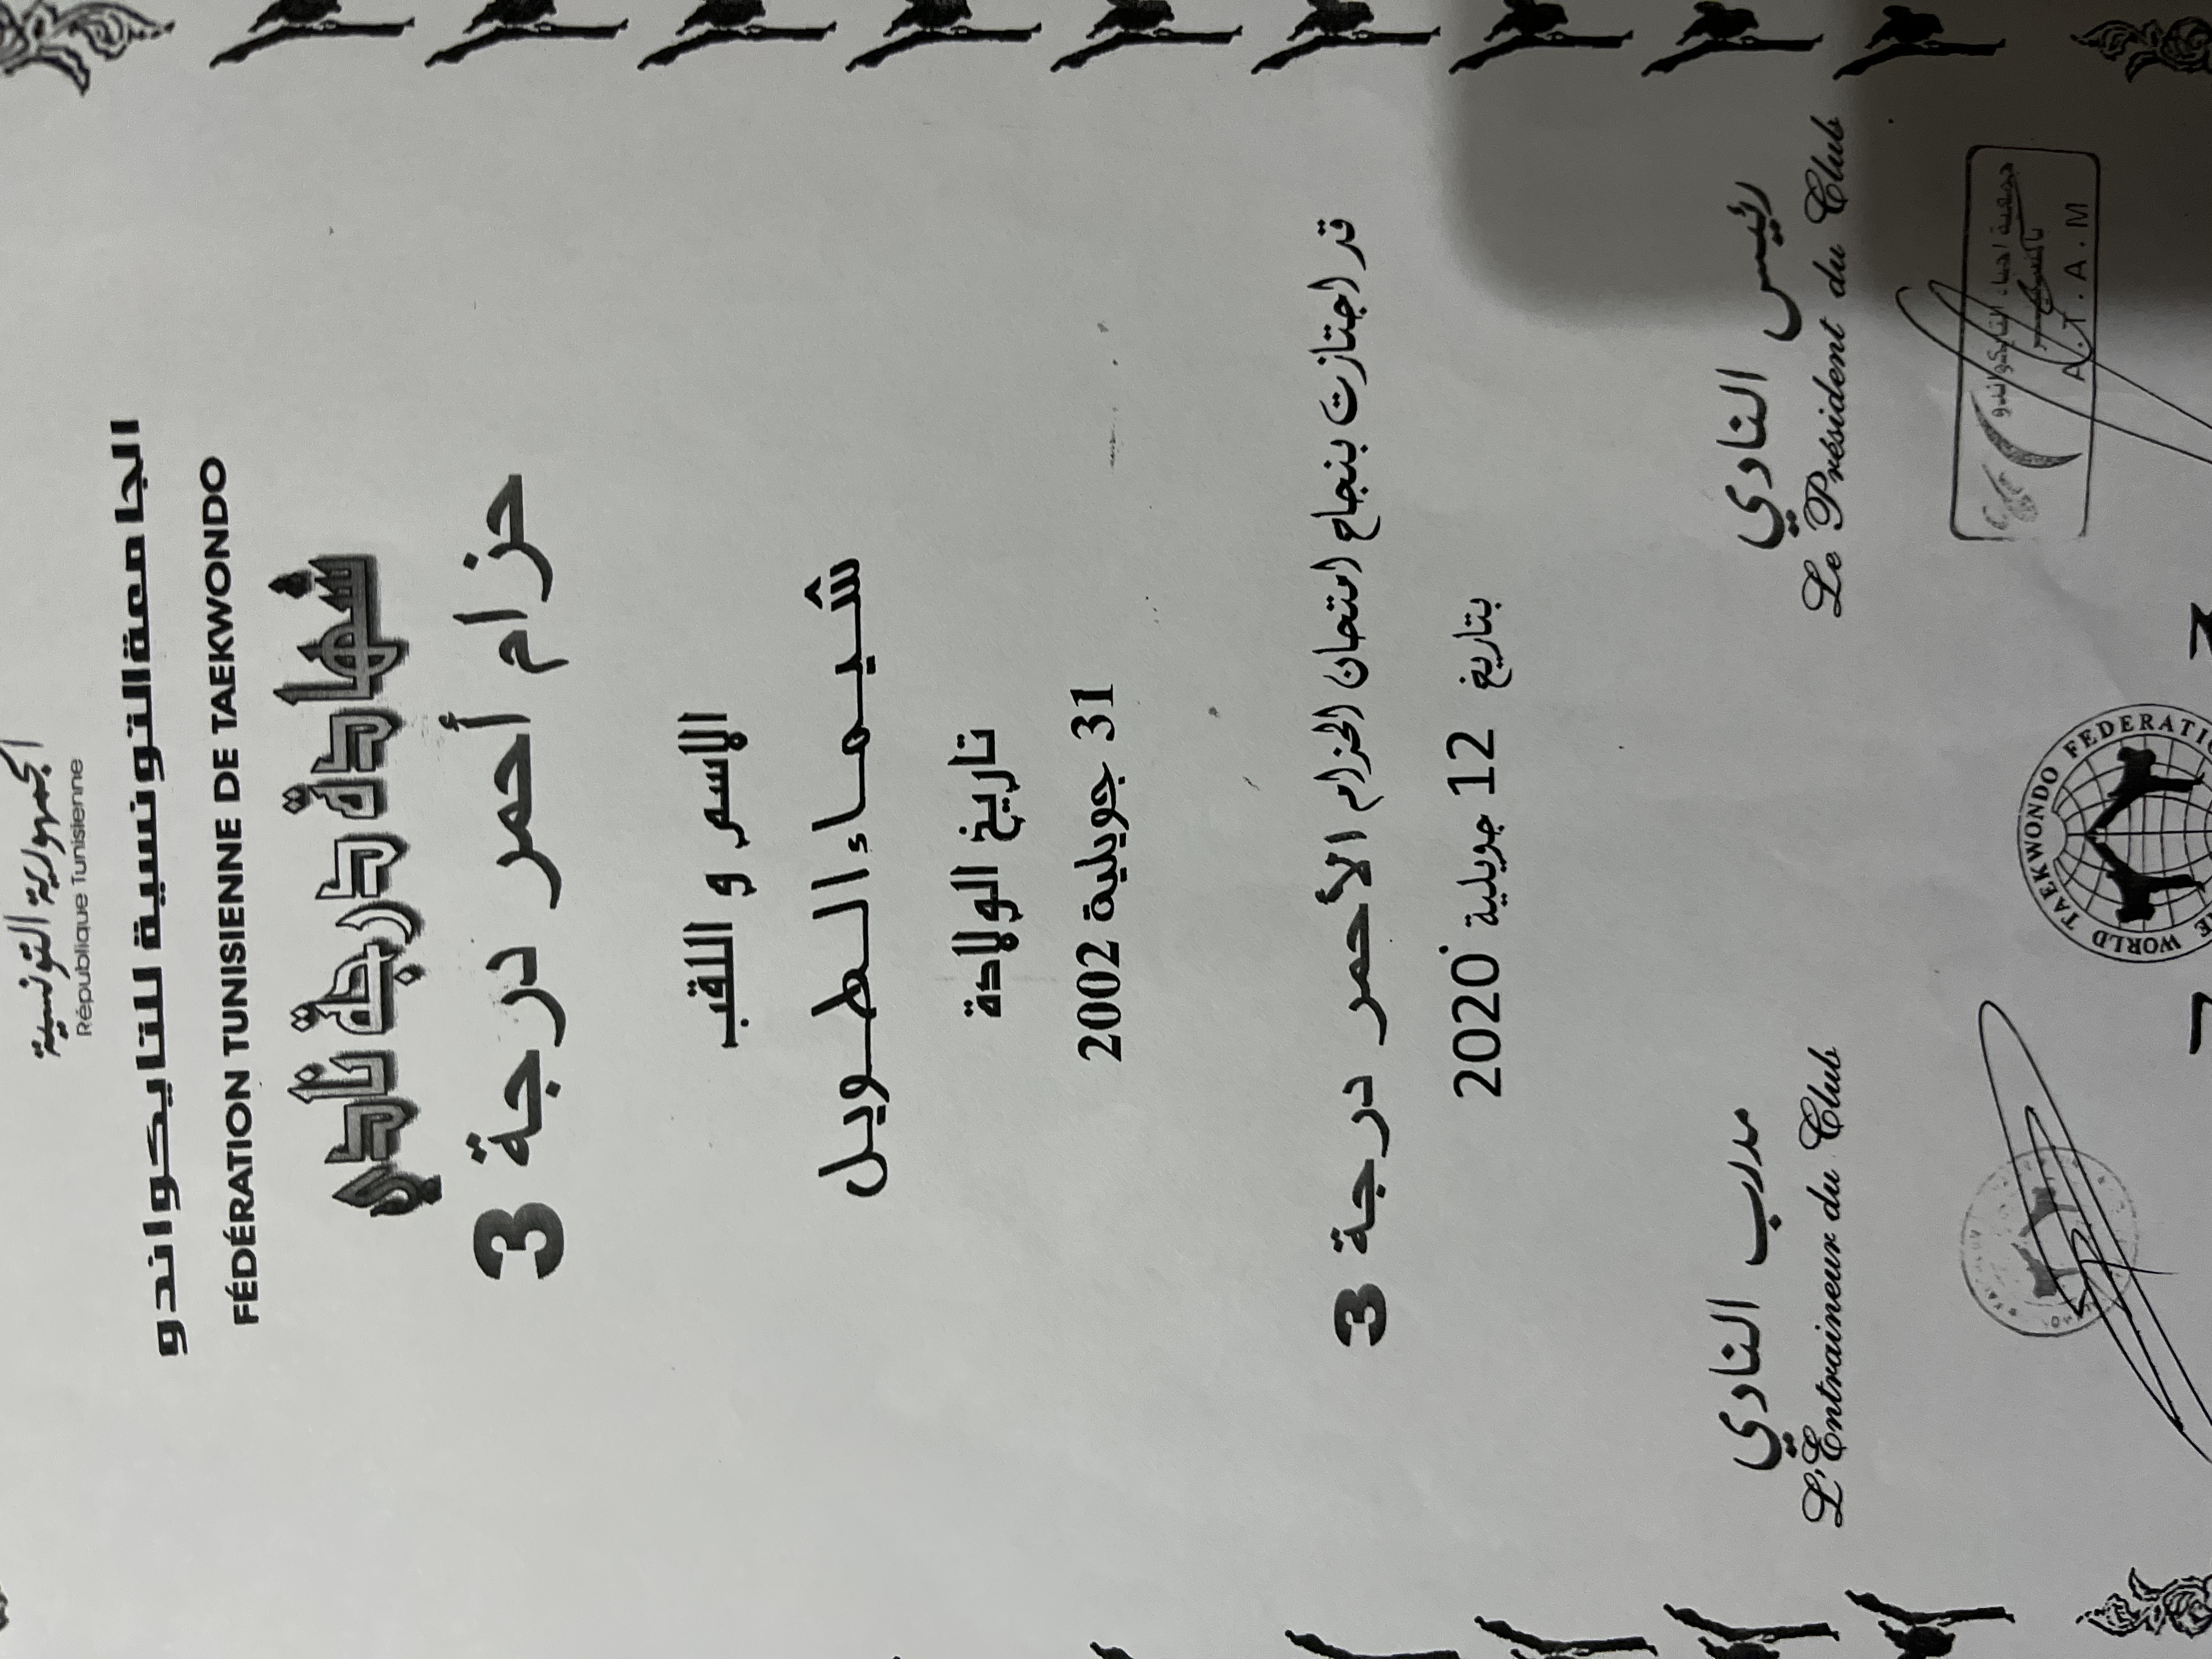 الجمهورية التونسية
République Tunisienne
الجامعة التونسية للتايكواندو
FÉDÉRATION TUNISIENNE DE TAEKWONDO
شهادة درجة نادي
حزام أحمر درجة 3
الإسم و اللقب
شيماء الطويل
تاريخ الولادة
31 جويلية 2002
قد اجتازت بنجاح امتحان الحزام الأحمر درجة 3
بتاريخ 12 جويلية 2020
رئيس النادي
Le Président du Club
مدرب النادي
L'Entraineur du Club
جمعية احباء التايكواندو
A.T.A.M
WORLD TAEKWONDO FEDERATI